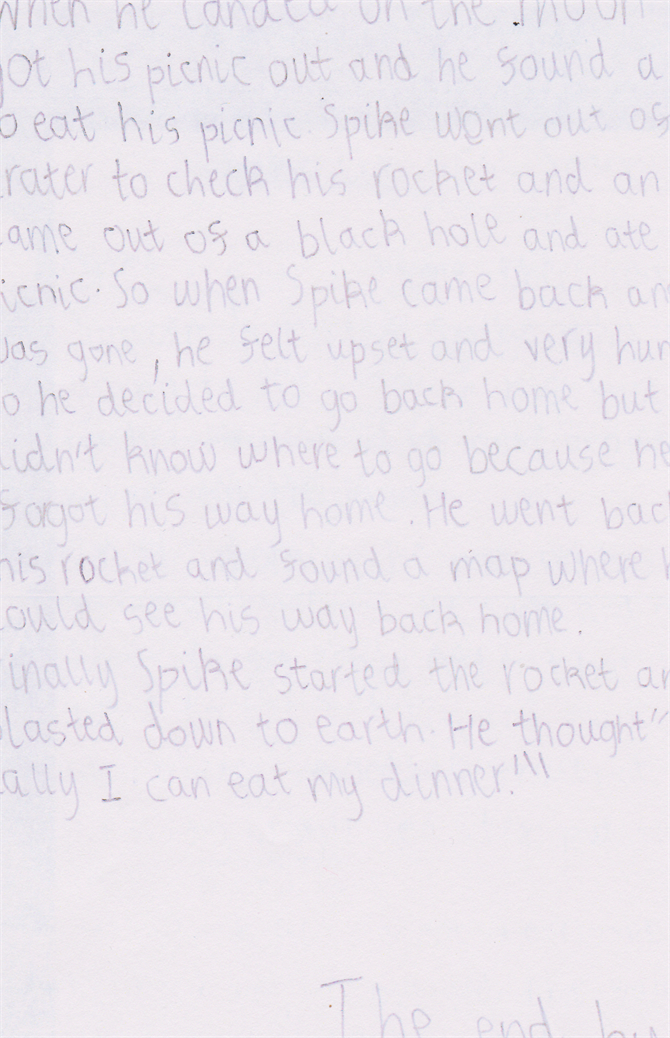 When he landed on the moon
got his picnic out and he found a
o eat his picnic. Spike went out of
rater to check his rocket and an
ame out of a black hole and ate
icnic. So when Spike came back an
was gone, he felt upset and very hun
o he decided to go back home but
idn't know where to go because he
forgot his way home. He went bac
his rocket and found a map where h
could see his way back home.
inally Spike started the rocket an
blasted down to earth. He thought"
ally I can eat my dinner!"
The end by